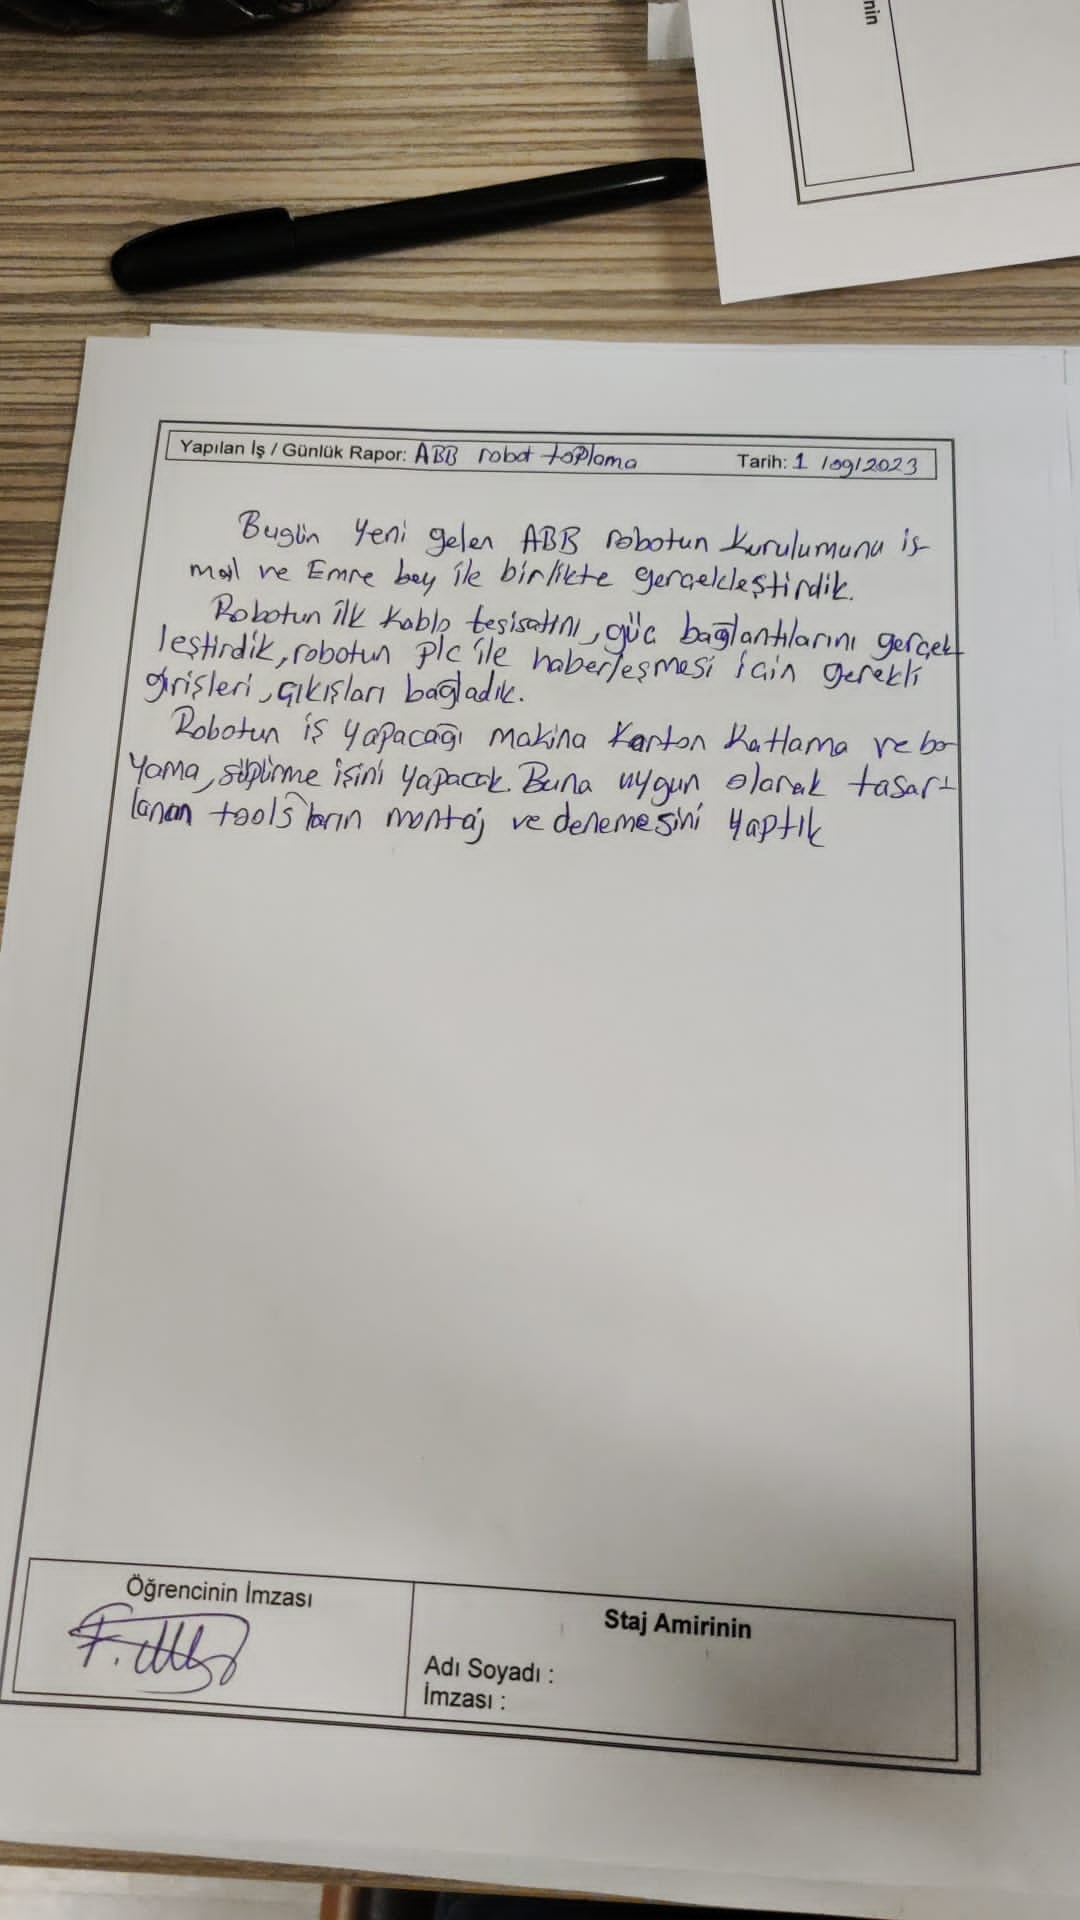 nin
Yapılan İş / Günlük Rapor: ABB robot toplama Tarih: 1 /09/2023
Bugün yeni gelen ABB robotun kurulumunu is-
mail ve Emre bey ile birlikte gerçekleştirdik.
Robotun ilk kablo tesisatını, güç bağlantılarını gerçek
leştirdik, robotun plc ile haberleşmesi için gerekli
girişleri, çıkışları bağladık.
Robotun iş yapacağı makina karton katlama ve bo
yama, süpürme işini yapacak. Buna uygun olarak tasar-
lanan tools'ların montaj ve denemesini yaptık
Öğrencinin İmzası
Staj Amirinin
Adı Soyadı :
İmzası :